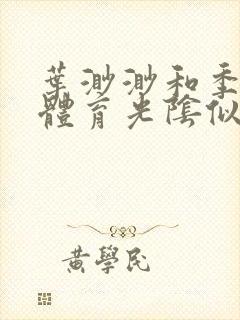 葉渺渺和季
體育光陰似
黃學民